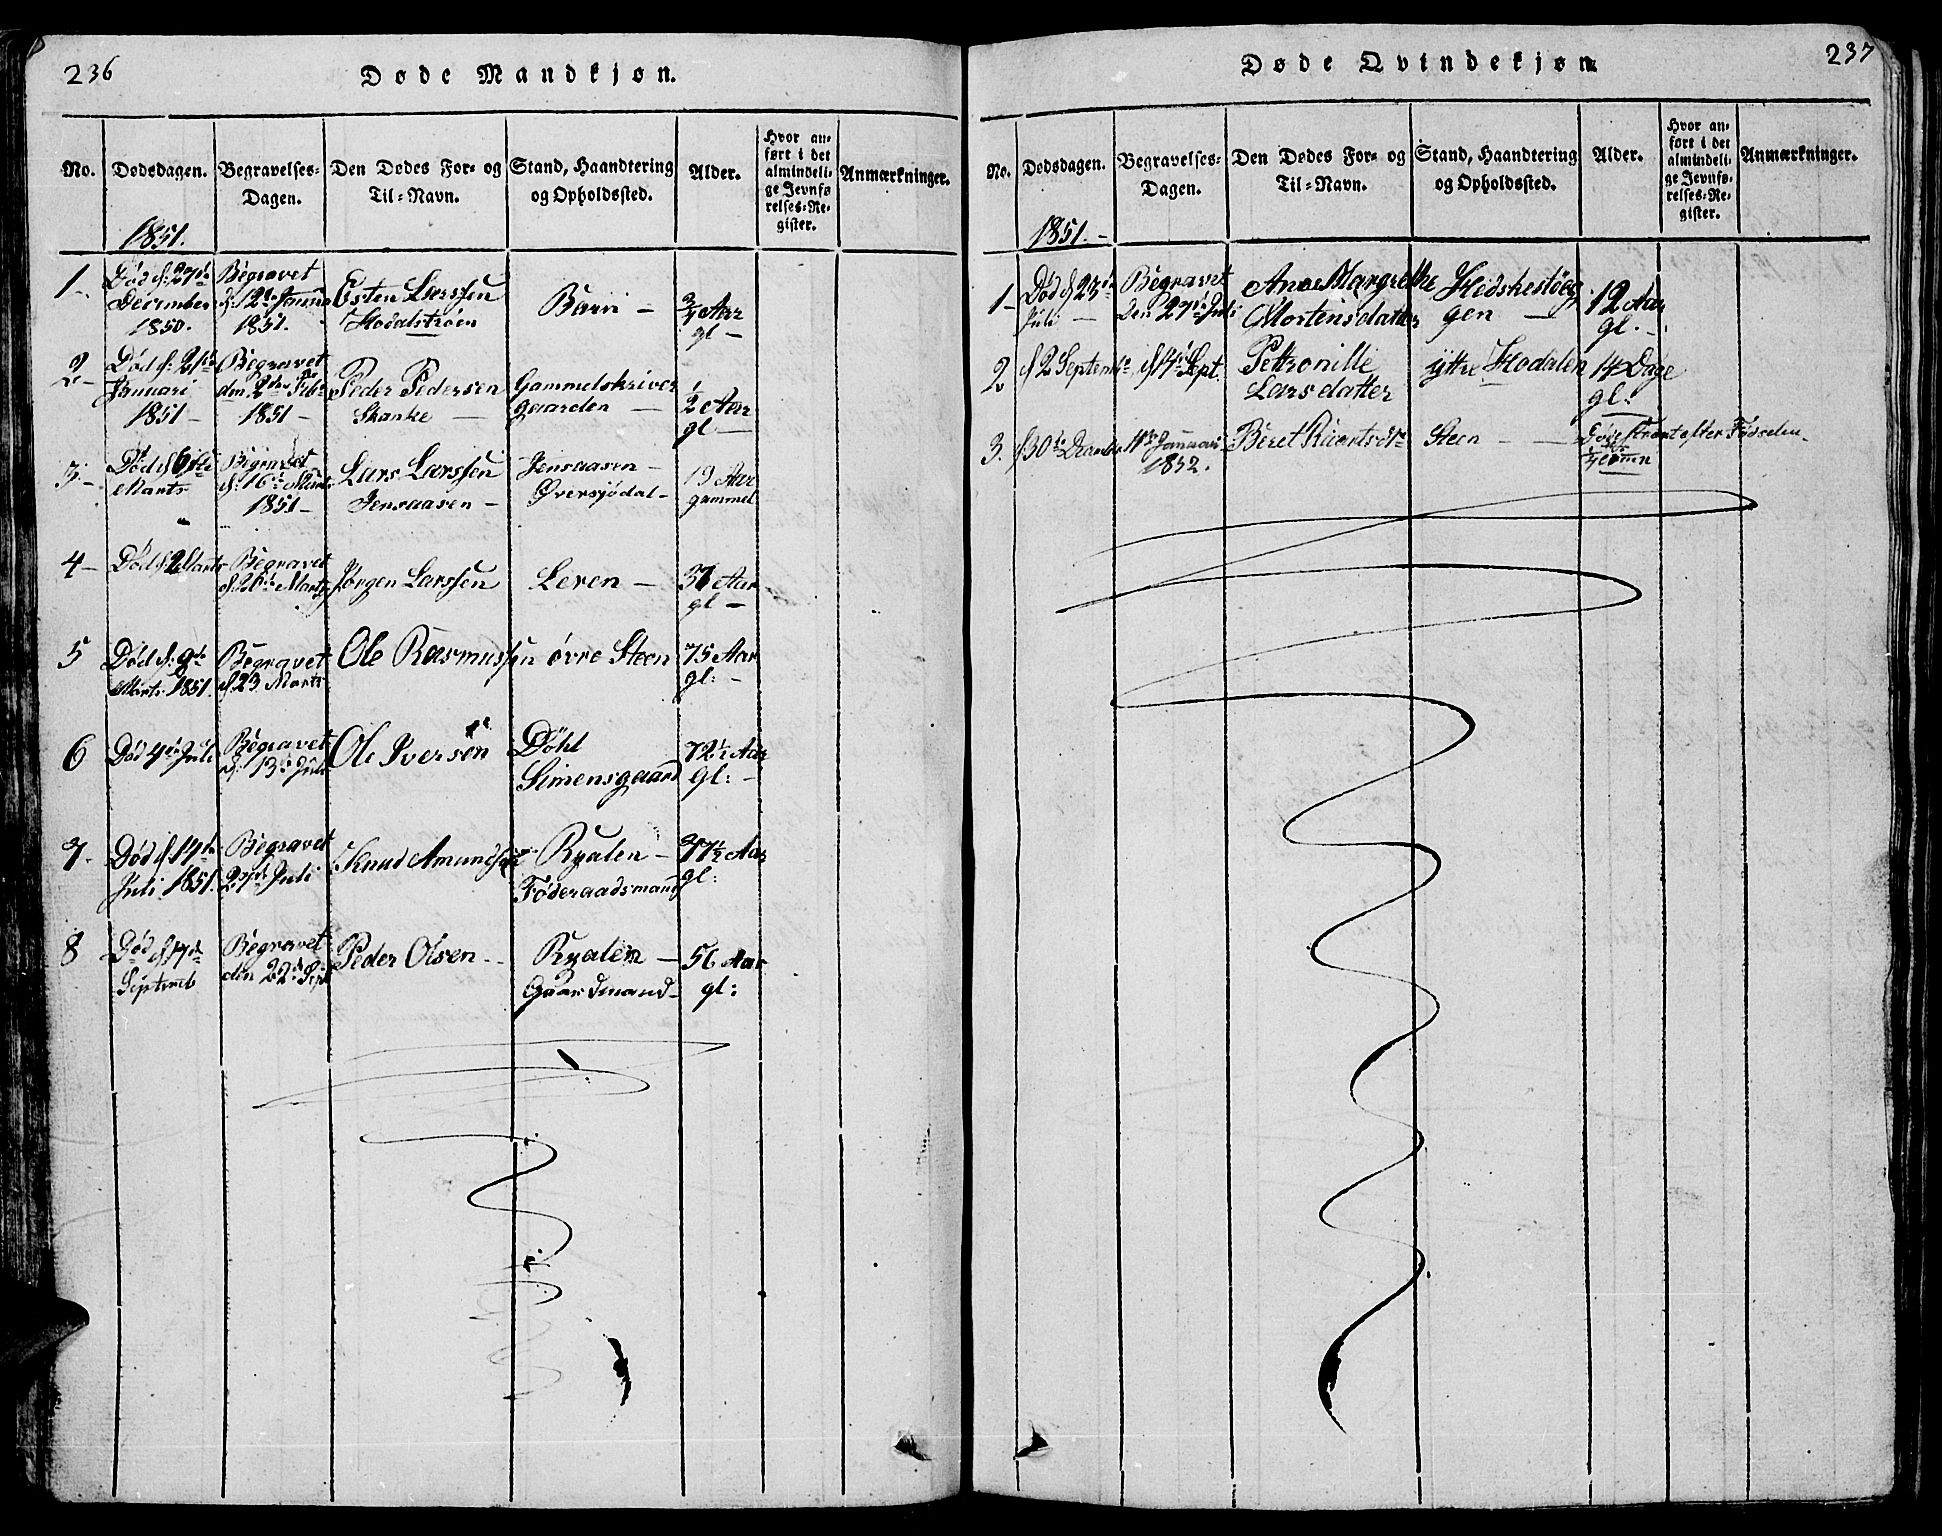 236
Døde Mandkjøn.
No.
Dødsdagen.
Begravelses-
Dagen.
Den Dødes For- og
Til-Navn.
Stand, Haandtering
og Opholdssted.
Alder.
Hvor an-
ført i det
almindeli-
ge Jevnfø-
relses-Re-
gister.
Anmærkninger.
1851.
1.
Død d: 27de
December
1850.
Begravet
d: 12te Janua
1851.
Esten Larssen
Hodalstrøen
Barn -
3/4 Aar
gl -
2 -
Død d: 21de
Januari
1851 -
Begravet
den 2den Feb
1851 -
Peder Pedersen
Skanke -
Gammelskriver
gaarden -
1/2 Aar
gl -
3. -
Død d 6te
Marts
Begravet
d: 16de Marts
1851 -
Lars Larssen
Jensaasen -
Jensaasen -
Øversjødal -
19 Aar
gammel
4 -
Død d: 2 Marts
Begravet
d: 26de Marts
Jørgen Larssen
Leren -
37 Aar
gl -
5
Død d: 9de
Marts 1851.
Begravet
d 23 Marts
Ole Rasmussen
øvre Steen
75 Aar
gl: -
6
Død 4de Juli
Begravet
d: 13de Juli
Ole Iversen
Døhl
Simensgaard
72½ Aar
gl: -
7.
Død d 14de
Juli 1851.
Begravet
27de Juli
Knud Amundsen
Ryalen -
Føderaadsmand
77½ Aar
gl:
8
Død d 17de
Septemb
Begravet
den 22de Sept
Peder Olsen -
Ryalen -
Gaardmand -
56 Aar
gl:
237
Døde Qvindekjøn
No.
Dødsdagen.
Begravelses-
Dagen.
Den Dødes For- og
Til-Navn.
Stand, Haandtering
og Opholdssted.
Alder.
Hvor an-
ført i det
almindeli-
ge Jevnfø-
relses-Re-
gister.
Anmærkninger.
1851. -
1 -
Død d 23de
Juli -
Begravet
den 27de Juli
Ane Margrethe
Mortensdatter
gen -
12 Aar
gl. -
2
d 2 Septemb
d 14de Sept.
Pettronille
Larsdatter
yttre Hodalen
14 Dage
gl:
3.
d 30te Decembr
11te Januari
1852.
Beret
Steen -
Døde strax efter Fødselen